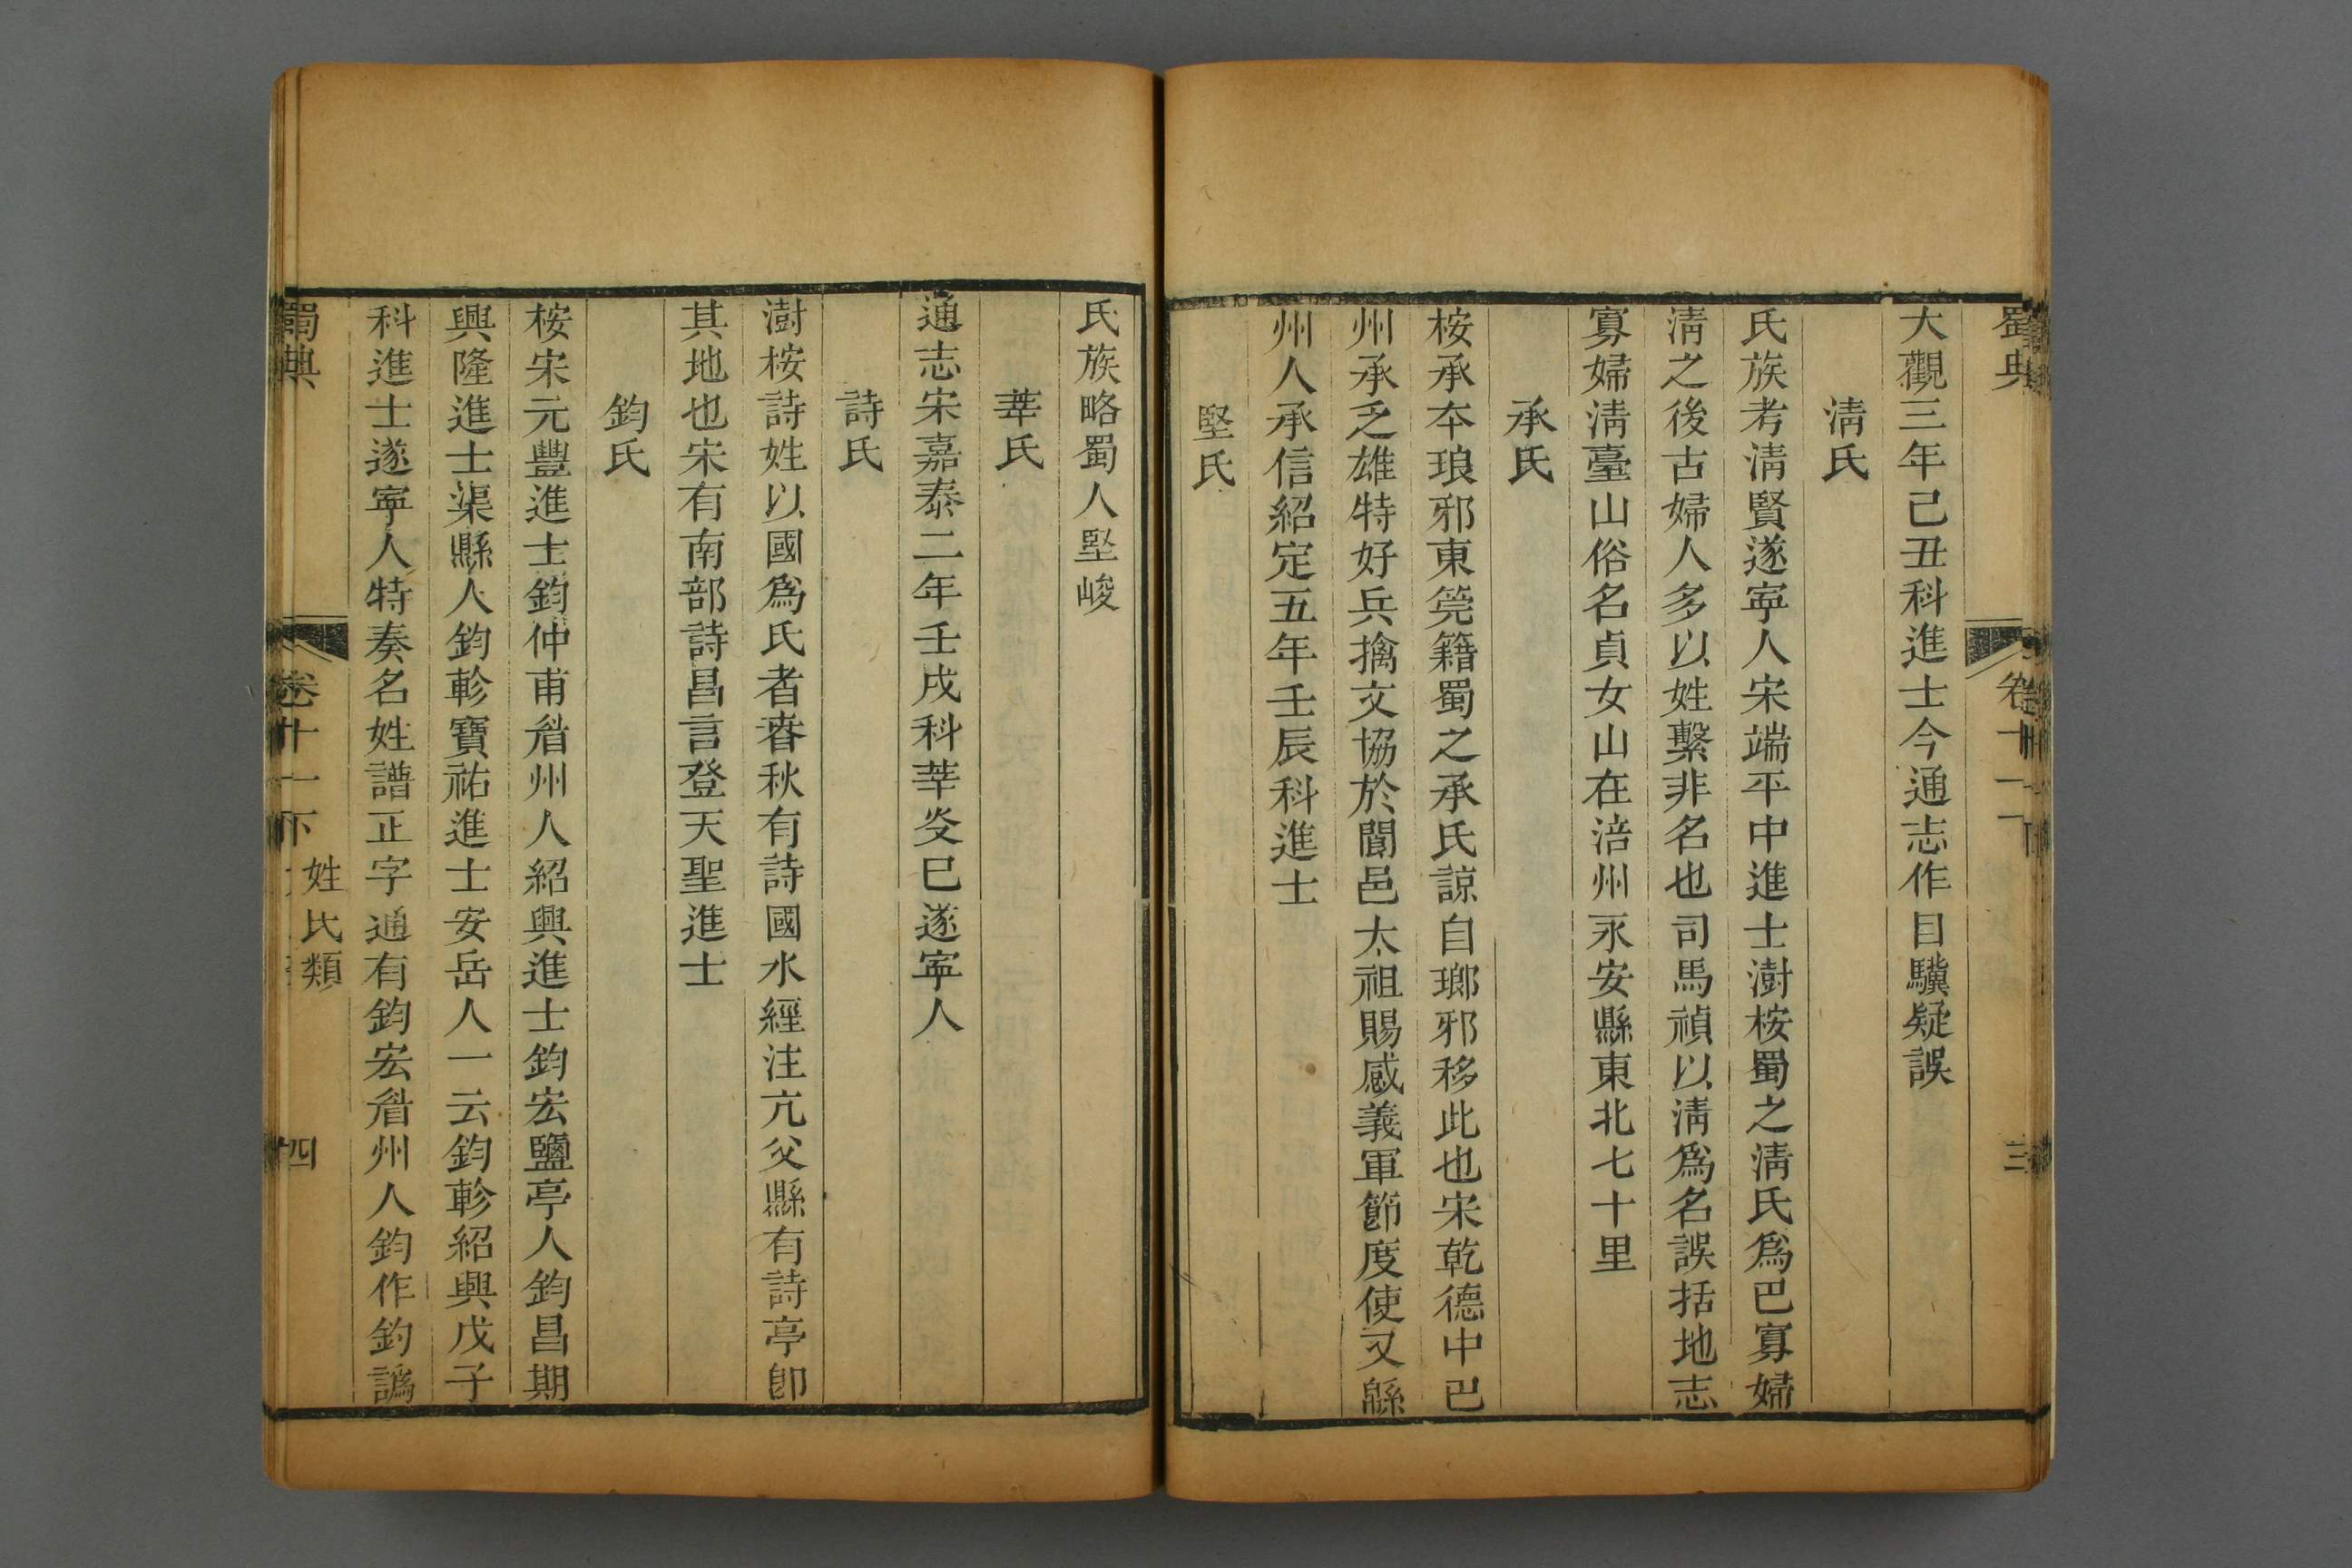 蜀典
卷十一下
三
大觀三年己丑科進士今通志作目驥疑誤
淸氏
氏族考淸賢遂寧人宋端平中進士澍桉蜀之淸氏爲巴寡婦
淸之後古婦人多以姓繫非名也司馬禎以淸爲名誤括地志
寡婦淸臺山俗名貞女山在涪州永安縣東北七十里
承氏
桉承本琅邪東筦籍蜀之承氏諒自瑯邪移此也宋乾德中巴
州承乏雄特好兵擒文協於閬邑太祖賜感義軍節度使又緜
州人承信紹定五年壬辰科進士
堅氏
氏族略蜀人堅峻
莘氏
通志宋嘉泰二年壬戌科莘炎巳遂寧人
詩氏
澍桉詩姓以國爲氏者春秋有詩國水經注亢父縣有詩亭卽
其地也宋有南部詩昌言登天聖進士
鈞氏
桉宋元豐進士鈞仲甫眉州人紹興進士鈞宏鹽亭人鈞昌期
興隆進士渠縣人鈞軫寶祐進士安岳人一云鈞軫紹興戊子
科進士遂寧人特奏名姓譜正字通有鈞宏眉州人鈞作鈞譌
蜀典
卷十一下
姓氏類
四